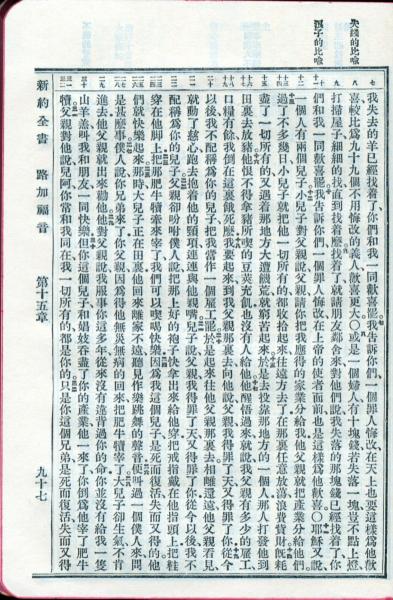 失錢的比喻
浪子的比喻
我失去的羊已經找着了你們和我一同歡喜罷我告訴你們一個罪人悔改在天上也要這樣爲他歡
喜較比爲九十九個不用悔改的義人歡喜更大〇或是一個婦人有十塊錢若失落一塊豈不點上燈
打掃屋子細細的找直到找着麼找着了就請朋友鄰舍來對他們說我失落的那塊錢已經找着了你
們和我一同歡喜罷我告訴你們一個罪人悔改在上帝的使者面前也是這樣爲他歡喜〇耶穌又說
一個人有兩個兒子小兒子對父親說父親請你把我應得的家業分給我他父親就把產業分給他們
過了不多幾日小兒子就把他一切所有的都收拾起來往遠方去了在那裏任意放蕩浪費貲財既耗
盡了一切所有的又遇着那地方大遭饑荒就窮苦起來於是去投靠那地方的一個人那人打發他到
田裏去放豬他恨不得拿豬所喫的豆莢充飢也沒有人給他他醒悟過來就說我父親有多少的雇工
口糧有餘我倒在這裏餓死麼我要起來到我父親那裏去向他說父親我得罪了天又得罪了你從今
以後我不配稱爲你的兒子把我當作一個雇工罷於是起來往他父親那裏去相離還遠他父親看見
就動了慈心跑去抱着他的頸項連連與他親嘴兒子說父親我得罪了天又得罪了你從今以後我不
配稱爲你的兒子父親卻吩咐僕人說把那上好的袍子快拿出來給他穿把戒指戴在他指頭上把鞋
穿在他脚上把那肥牛犢牽來宰了我們可以喫喝快樂因爲我這個兒子是死而復活失而又得的他
們就快樂起來那時大兒子正在田裏他回來離家不遠聽見作樂跳舞的聲音便叫過一個僕人來問
是甚麼事僕人說你兄弟來了你父親因爲得他無災無病的回來把肥牛犢宰了大兒子卻生氣不肯
進去他父親就出來勸他他對父親說我服事你這多年從來沒有違背過你的命你並沒有給我一隻
山羊羔叫我和朋友一同快樂但你這個兒子和娼妓吞盡了你的產業他一來了你倒爲他宰了肥牛
犢父親對他說兒阿你常和我同在我一切所有的都是你的只是你這個兄弟是死而復活失而又得
新約全書 路加福音 第十五章 九十七